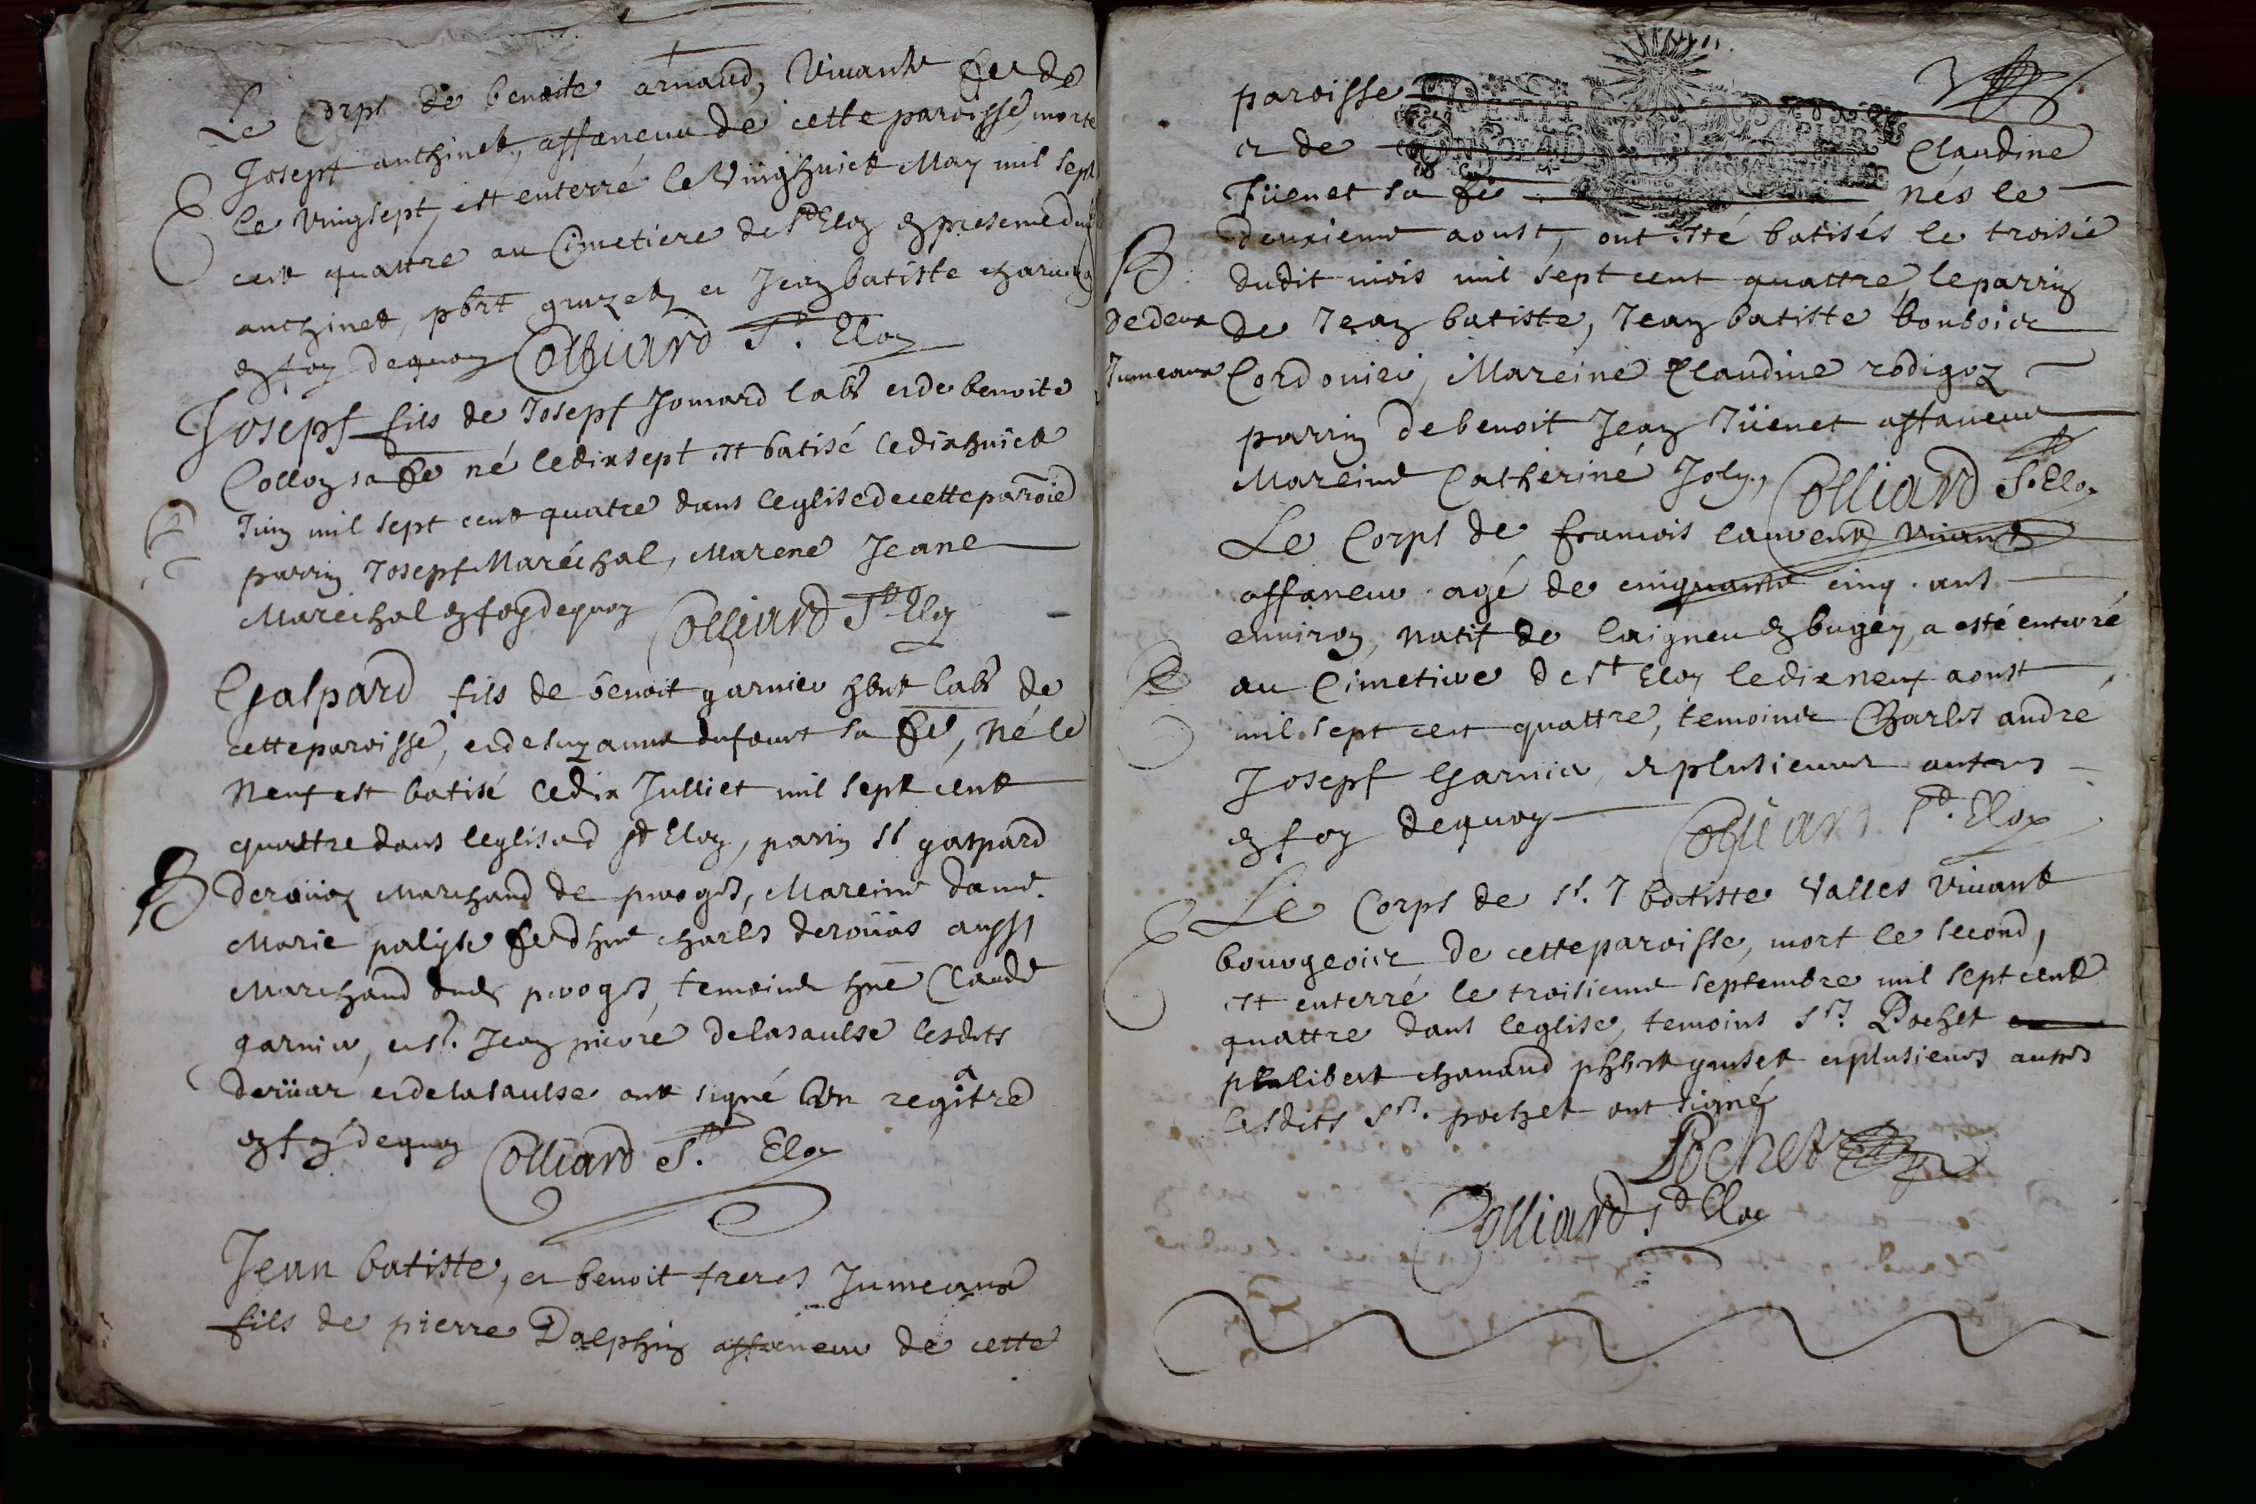 Le Corps de benoite arnaud, Vivante fe de
Josepf anthinet, affaneur de cette paroisse, morte
le vingsept, est enterré le vinghuict May mil sept
cent quattre au Cimetiere de St Eloy en presence dud
anthinet, phbrt gruzet, et Jean batiste charv
en foy dequoy Colliard St. Eloy
Josepf fils de Josepf Jomard labr et de benoite
Colloy sa fe né le dixsept est batisé le dixhuict
Juin mil sept cent quatre dans leglise de cette paroise
parrin Josepf Maréchal, Marene Jeane
Maréchal en foy dequoy Colliard St Eloy
Gaspard fils de benoit garnier hbnt labr de
cette paroisse, et de suzanne dufour sa fe, Né le
Neuf est batisé le dix Julliet mil sept cent
B
quattre dans leglise d St Eloy, parin sr gaspard
Marchand de Mareine dame
Marie fe d charles aussi
Marchand dud temoins hne Claude
garnier, et sr. Jean delasaulse lesdits
et delasaulse ont signé registre
en foy dequoy Colliard St. Eloy
Jean batiste, et benoit freres Jumeaux
fils de pierre Dalphin affaneur de cette
paroisse
PETIT PAPIER
et de Claudine
Jüenet sa fe nés le
deuxieme aoust, ont esté batisés le troisie
B
de deux
Jumeaux
dudit mois mil sept cent quattre, le parrin
de Jean batiste, Jean batiste bonboir
Cordonier, Mareine Claudine rodigoz
parrin de benoit Jean Jüenet affaneur
Mareine Catherine Joly, Colliard St. Eloy
Le Corps de francois laurent vivant
affaneur agé de cinquante cinq ans
environ, natif de laigneu en bugey, a esté enterré
au Cimetiere de St Eloy le dixneuf aoust
mil sept cent quattre, temoins Charles andré
Josepf Garnier, et plusieurs autres
en foy dequoy Colliard St. Eloy
Le Corps de sr. J batiste Valles Vivant
bourgeois de cette paroisse, mort le second,
est enterré le troisieme septembre mil sept cent
quattre dans leglise, temoins srs. Pochet
philibert chanand phbrt gruset et plusieurs autres
lesdits srs. pochet ont signé
Pochet
Colliard St Eloy